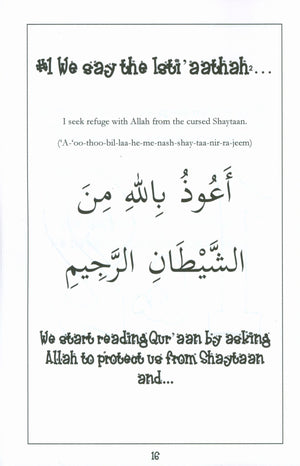 #1 We say the Isti'aathah²...
I seek refuge with Allah from the cursed Shaytaan.
('A-'oo-thoo-bil-laa-he-me-nash-shay-taa-nir-ra-jeem)
أَعُوذُ بِاللهِ مِنَ
الشَّيْطَانِ الرَّجِيمِ
We start reading Qur'aan by asking
Allah to protect us from Shaytaan
and...
16